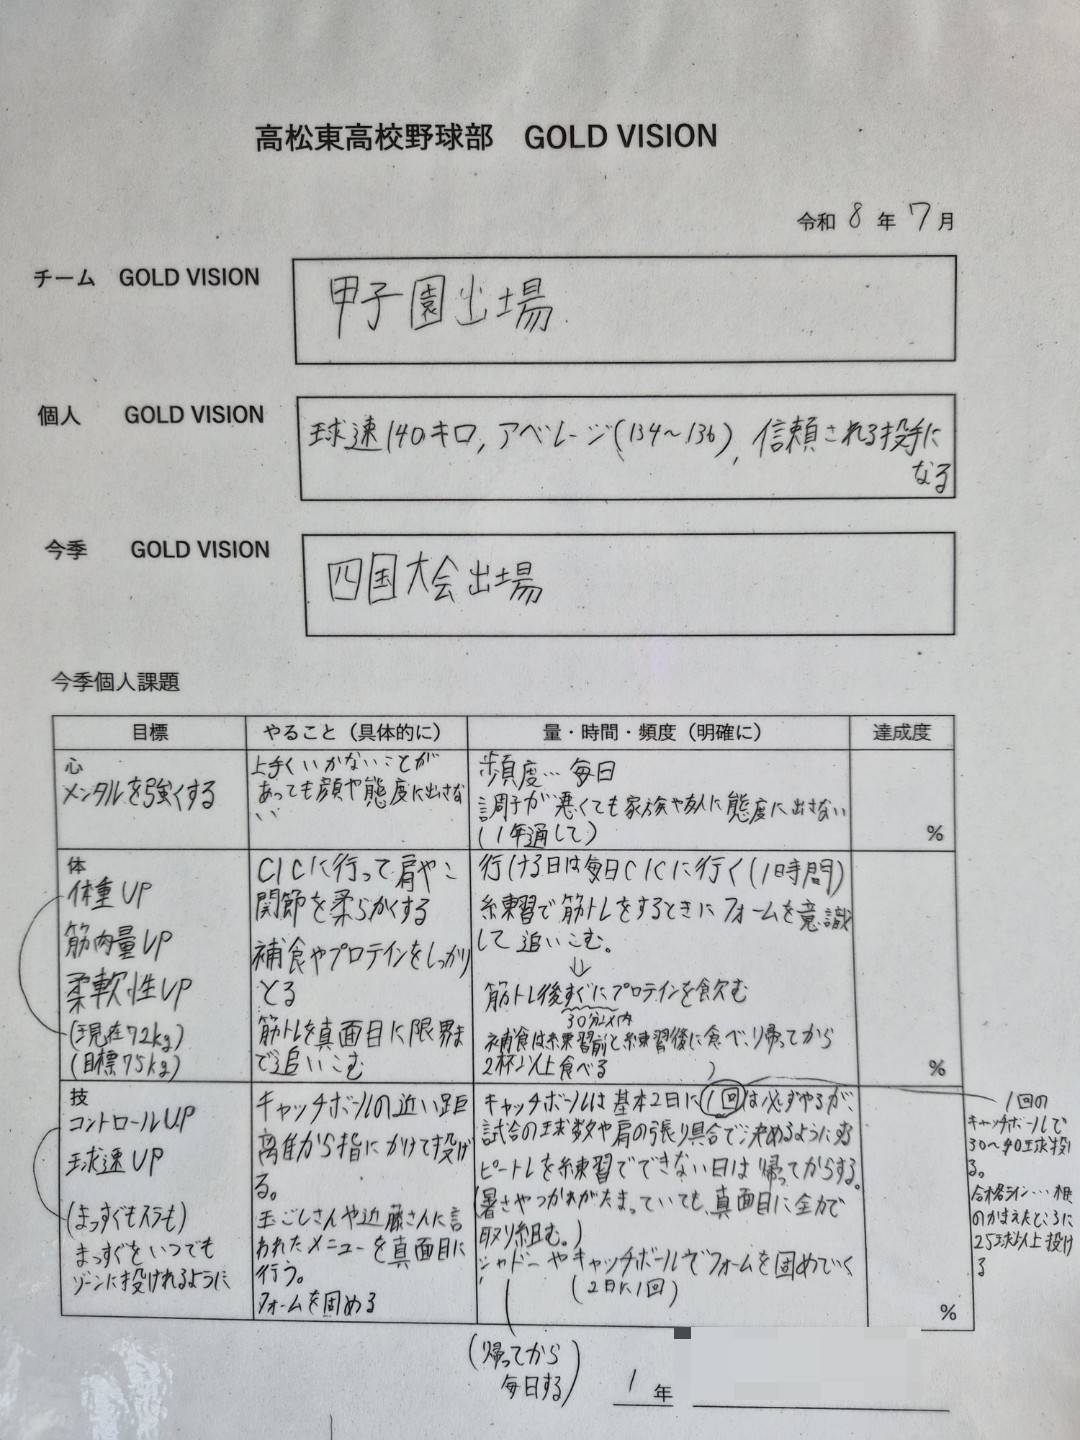 高松東高校野球部 GOLD VISION
令和 8 年 7 月
チーム GOLD VISION
甲子園出場
個人 GOLD VISION
球速140キロ,アベレージ(134~136),信頼される投手に
なる
今季 GOLD VISION
四国大会出場
今季個人課題
目標 やること(具体的に) 量・時間・頻度(明確に) 達成度
心
メンタルを強くする
上手くいかないことが
あっても顔や態度に出さな
い
頻度…毎日
調子が悪くても家族や友人に態度に出さない
(1年通して)
%
体
体重UP
筋肉量UP
柔軟性UP
(現在72kg)
(目標75kg)
CICに行って肩やこ
関節を柔らかくする
補食やプロテインをしっかり
とる
筋トレを真面目に限界ま
で追いこむ
行ける日は毎日CICに行く(1時間)
練習で筋トレをするときにフォームを意識
して追いこむ。
↓
筋トレ後すぐにプロテインを飲む
30分以内
補食は練習前と練習後に食べ、帰ってから
2杯以上食べる
%
技
コントロールUP
球速UP
(まっすぐもスラも)
まっすぐをいつでも
ゾーンに投げれるように
キャッチボールの近い距
離から指にかけて投げ
る。
玉ごしさんや近藤さんに言
われたメニューを真面目に
行う。
フォームを固める
キャッチボールは基本2日に1回は必ずやるが、
試合の球数や肩の張り具合で決めるように
ピートレを練習でできない日は帰ってからする。
(暑さやつかれがたまっていても、真面目に全力で
取り組む。)
シャドーやキャッチボールでフォームを固めていく
(2日に1回)
%
1回の
キャッチボールで
30~40球投げ
る。
合格ライン…相
のかまえたところに
25球以上投げ
る
(帰ってから
毎日する)
1 年